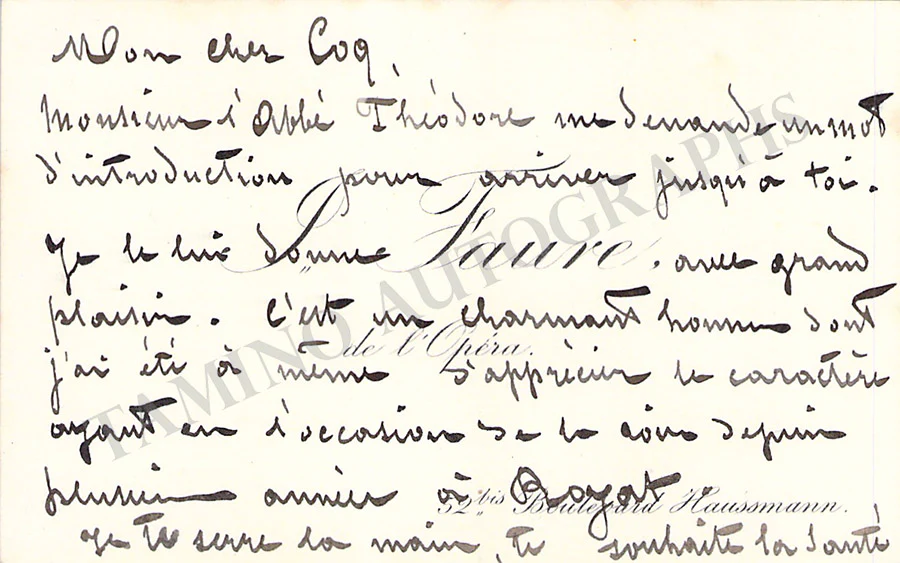 Mon cher Coq,
Monsieur l'Abbé Théodore me demande un mot
d'introduction pour arriver jusqu'à toi.
Je le lui donne avec grand
J. Faure,
plaisir. C'est un charmant homme dont
de l'Opéra.
j'ai été à même d'apprécier le caractère
ayant eu l'occasion de le voir depuis
plusieurs années à Royat.
52 bis Boulevard Haussmann.
Je te serre la main, te souhaite la santé
TAMINO AUTOGRAPHS